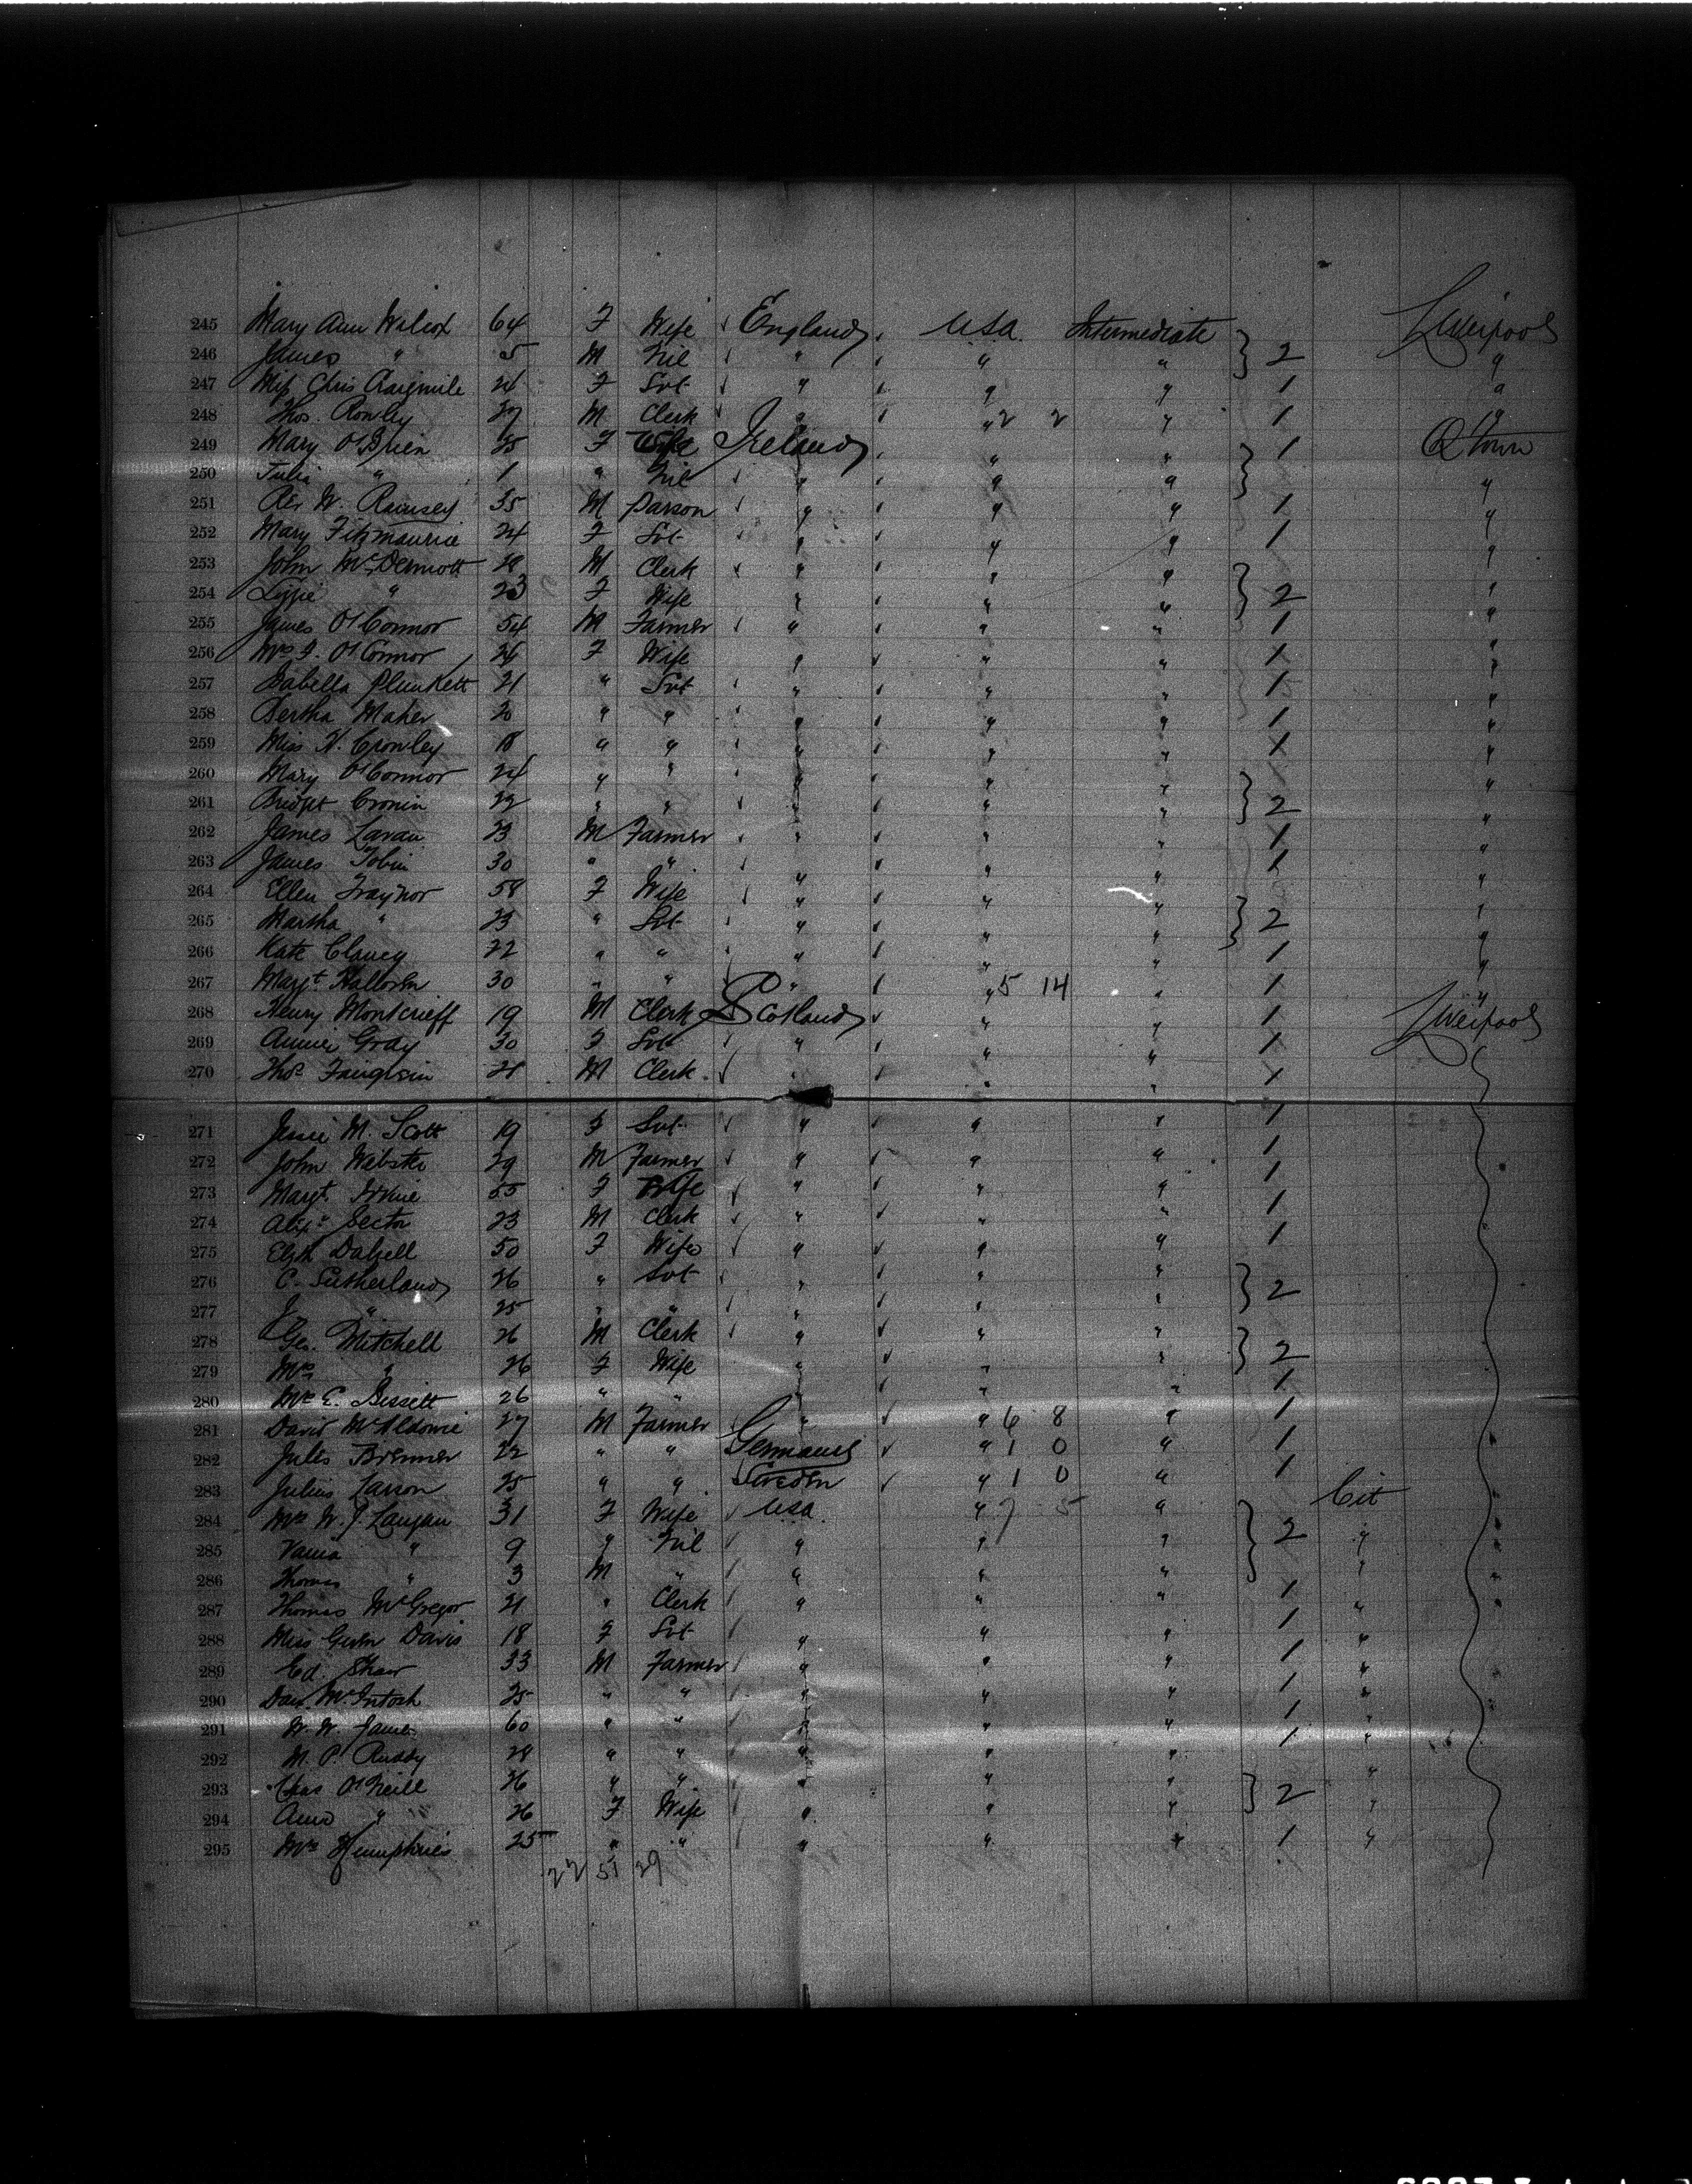 245 Mary Ann Walcot 64 F Wife England USA Intermediate Liverpool
246 James " 5 M Nil " " " } 2 "
247 Miss Chris 24 F Svt " " " 1 "
248 Thos. Rowley 27 M Clerk " " 2 2 " 1 "
249 Mary O'Brien 25 F Wife Ireland " " 1 Q Town
250 Julia " 1 " Nil " " " } "
251 Rev W. Ramsey 35 M Parson " " " 1 "
252 Mary Fitzmaurice 24 F Svt " " " 1 "
253 John McDermott 28 M Clerk " " " "
254 Lizzie " 23 F Wife " " " } 2 "
255 James O'Connor 54 M Farmer " " " 1 "
256 Mrs J. O'Connor 24 F Wife " " " 1 "
257 Isabella Plunkett 21 " Svt " " " 1 "
258 Bertha Maher 20 " " " " " 1 "
259 Miss N. Crowley 18 " " " " " 1 "
260 Mary O'Connor 24 " " " " " "
261 Bridget Cronin 22 " " " " " } 2 "
262 James Lavan 23 M Farmer " " " 1 "
263 James Tobin 30 " " " " " 1 "
264 Ellen Traynor 58 F Wife " " " "
265 Martha " 23 " Svt " " " } 2 "
266 Kate Clancy 22 " " " " " 1 "
267 Margt. Halloran 30 " " " " 5 14 " 1 "
268 Henry Montcrieff 19 M Clerk Scotland " " 1 Liverpool
269 Annie Gray 30 F Svt " " " 1
270 Thos. 21 M Clerk " " " 1
271 Jessie M. Scott 19 F Svt " " " 1
272 John Webster 29 M Farmer " " " 1
273 Margt. Irvine 55 F Wife " " " 1
274 Alexr. Sector 23 M Clerk " " " 1
275 Elizth Dalzell 50 F Wife " " " 1
276 C. Sutherland 26 " Svt " " "
277 J. " 25 " " " " " } 2
278 Geo. Mitchell 26 M Clerk " " "
279 Mrs " 26 F Wife " " " } 2
280 Mrs E. Bissett 26 " " " " " 1
281 David McAldowie 27 M Farmer " " 6 8 " 1
282 Jules Brenner 22 " " Germany " 1 0 " 1
283 Julius Larson 25 " " Sweden " 1 0 " 1
284 Mrs W. J. Langan 31 F Wife USA " 7 5 " Cit
285 Vania " 9 " Nil " " " } 2 "
286 Thomas " 3 M " " " " "
287 Thomas McGregor 21 " Clerk " " " 1 "
288 Miss Gwen Davis 18 F Svt " " " 1 "
289 Ed. Shaw 33 M Farmer " " " 1 "
290 Dav. McIntosh 25 " " " " " 1 "
291 W. W. James 60 " " " " " 1 "
292 M. P. Ruddy 28 " " " " " 1 "
293 Chas O'Neill 26 " " " " " "
294 Ann " 26 F Wife " " " } 2 "
295 Mrs Humphries 25 " " " " " 1 "
22 51 29